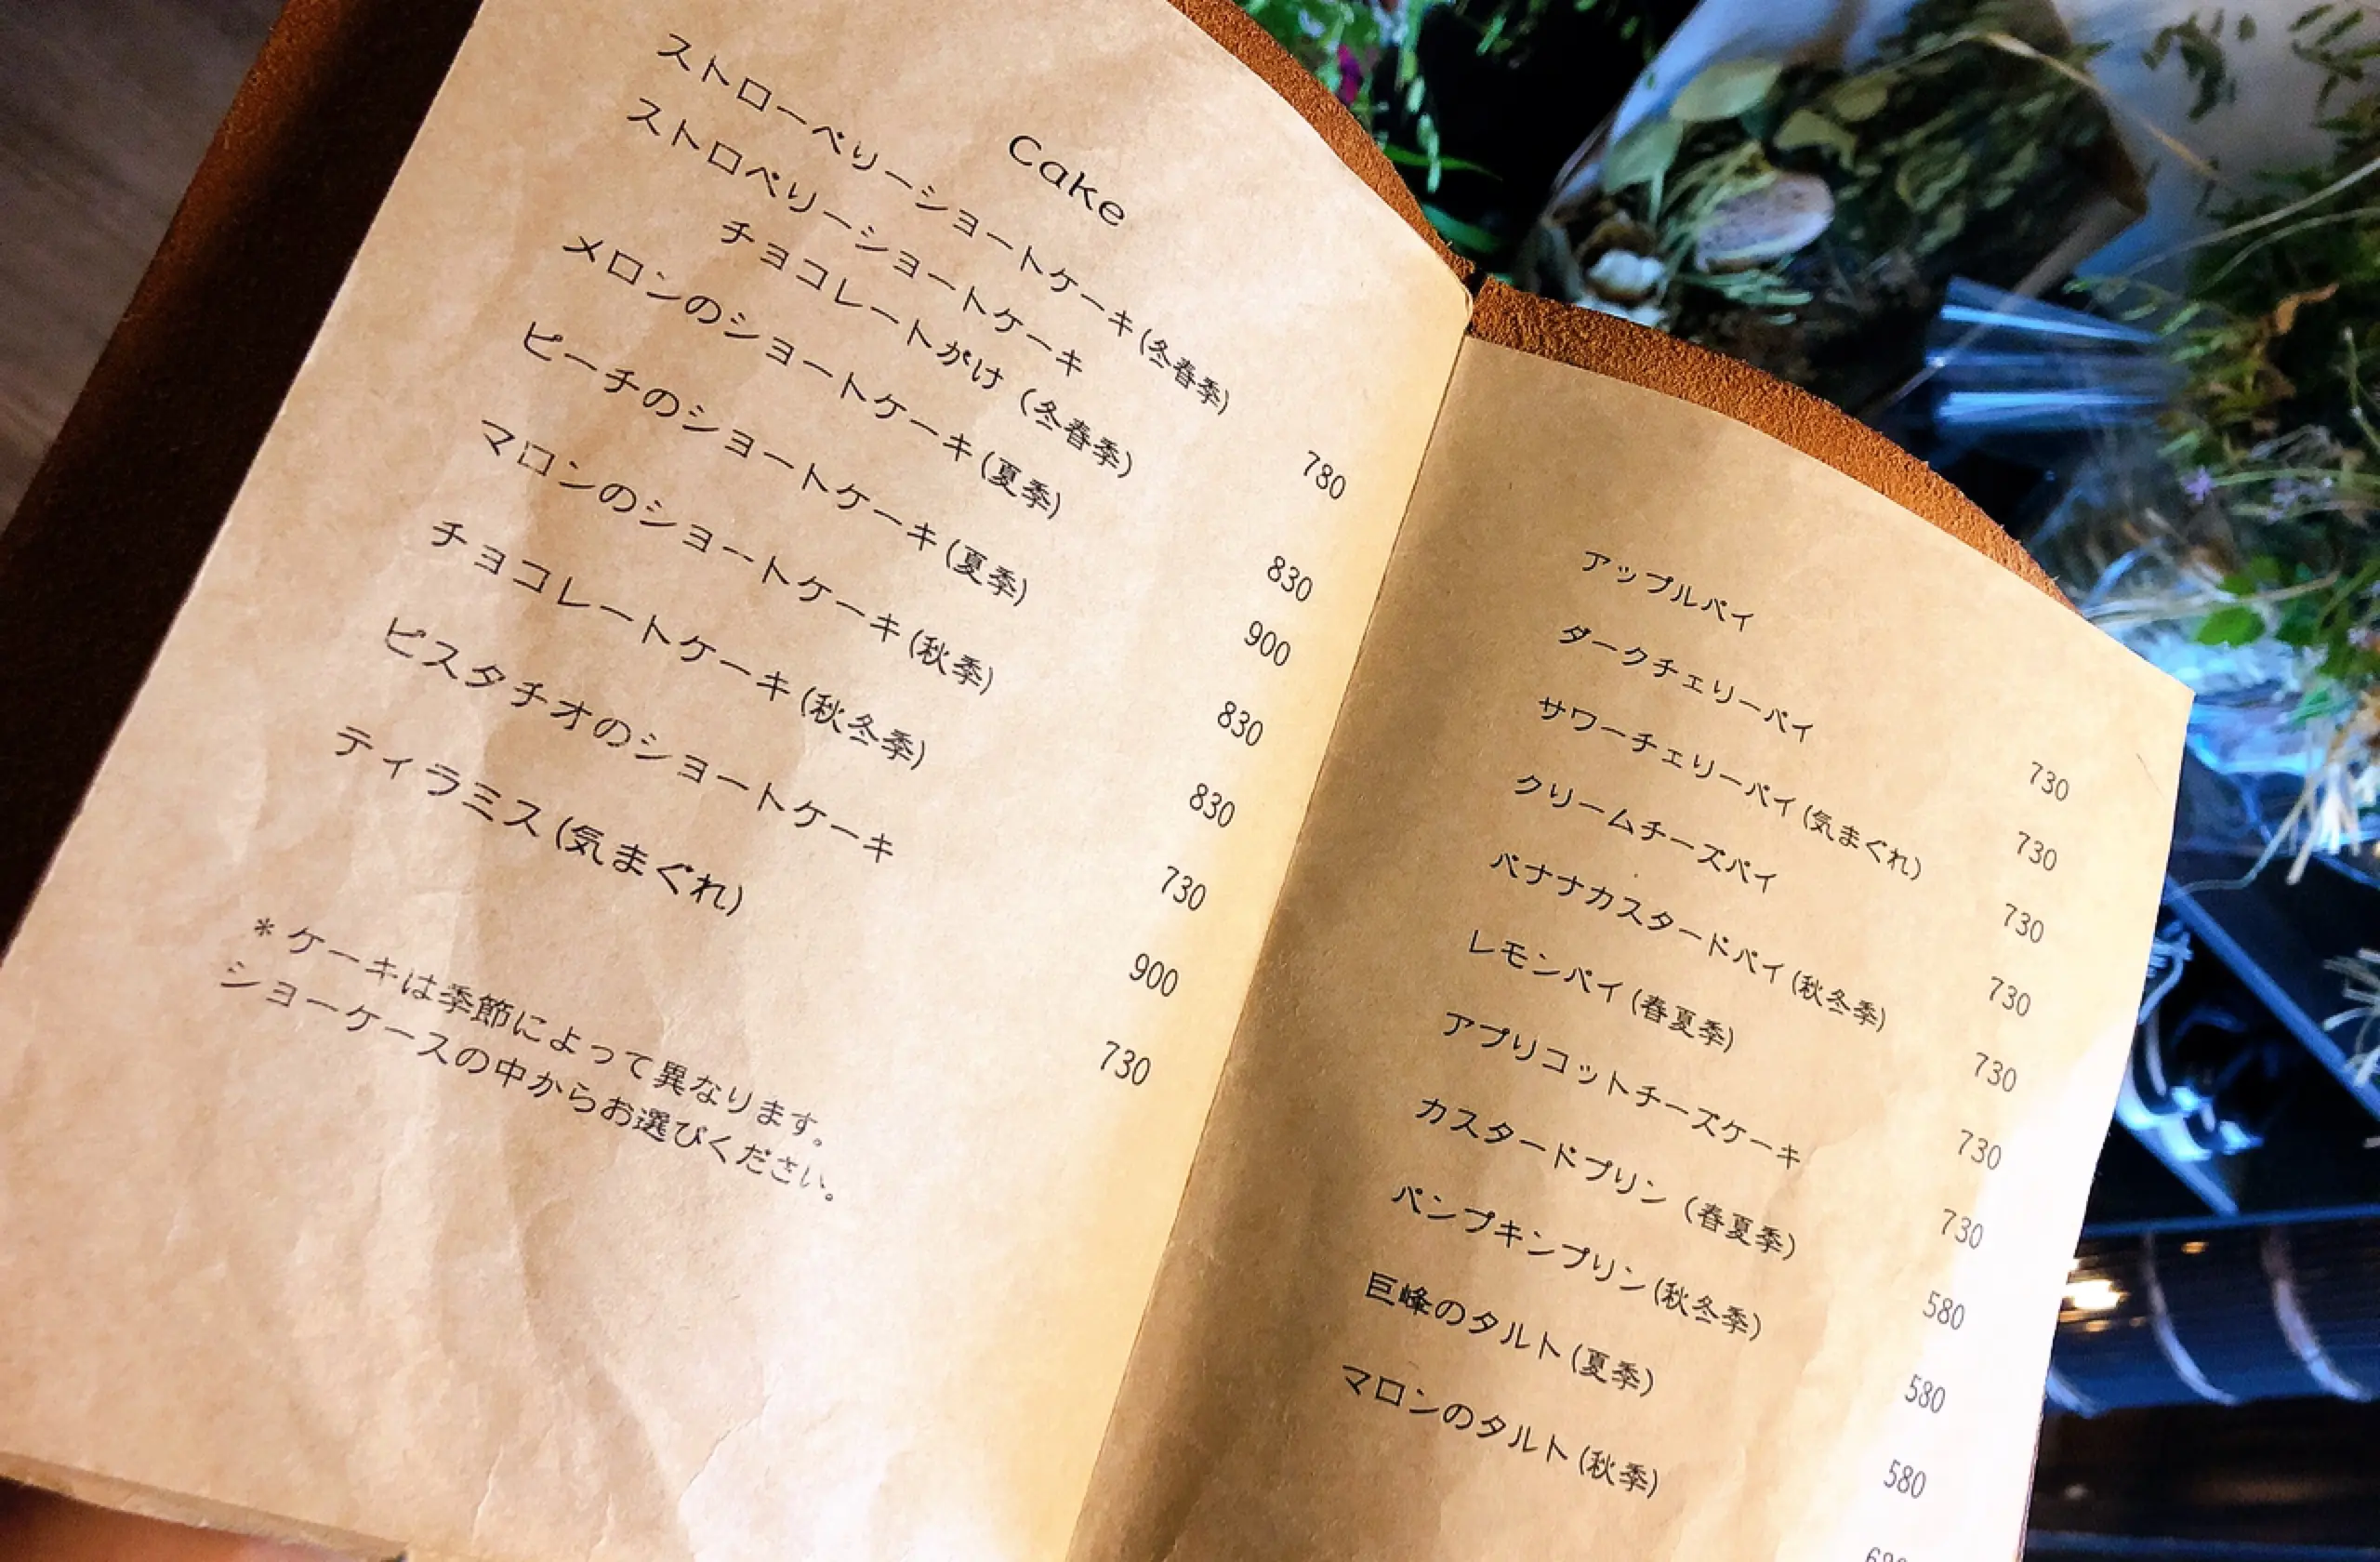 Cake
ストローベリーショートケーキ(冬春季) 780
ストロベリーショートケーキ
チョコレートがけ (冬春季) 830
メロンのショートケーキ(夏季) 900
ピーチのショートケーキ(夏季) 830
マロンのショートケーキ(秋季) 830
チョコレートケーキ(秋冬季) 730
ピスタチオのショートケーキ 900
ティラミス(気まぐれ) 730
*ケーキは季節によって異なります。
ショーケースの中からお選びください。
アップルパイ 730
ダークチェリーパイ 730
サワーチェリーパイ(気まぐれ) 730
クリームチーズパイ 730
バナナカスタードパイ(秋冬季) 730
レモンパイ(春夏季) 730
アプリコットチーズケーキ 730
カスタードプリン (春夏季) 580
パンプキンプリン(秋冬季) 580
巨峰のタルト(夏季) 580
マロンのタルト(秋季)